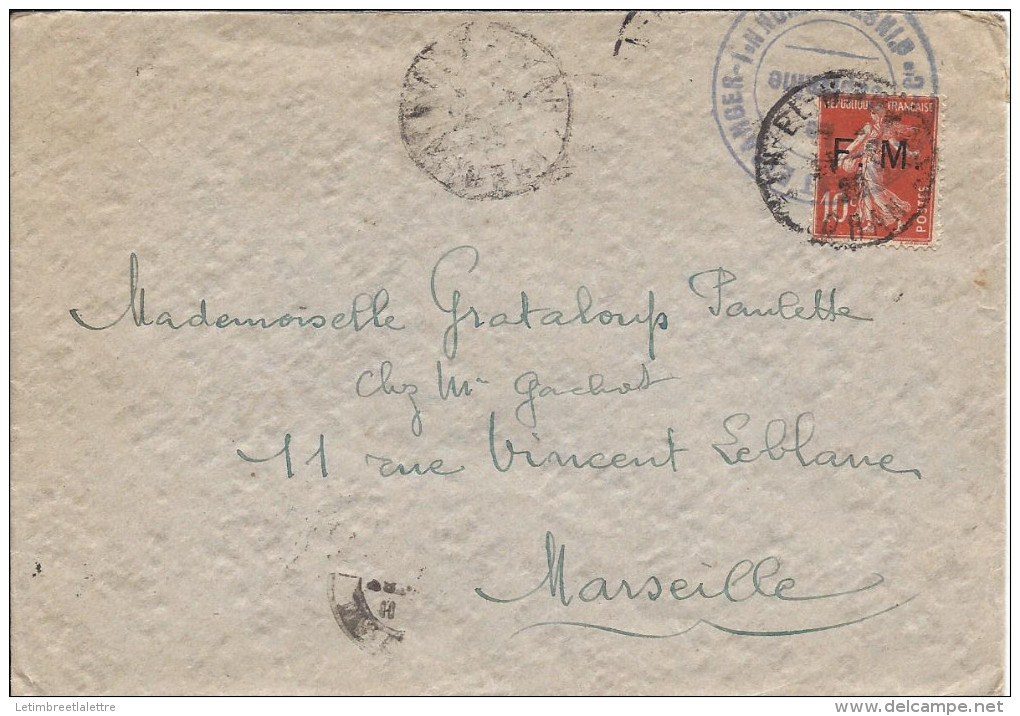 REPUBLIQUE FRANÇAISE
F. M.
10c
POSTES
Mademoiselle Grataloup Paulette
chez Mr Gachot
11 rue Vincent Leblanc
Marseille
Letimbreetlalettre
delcampe.net